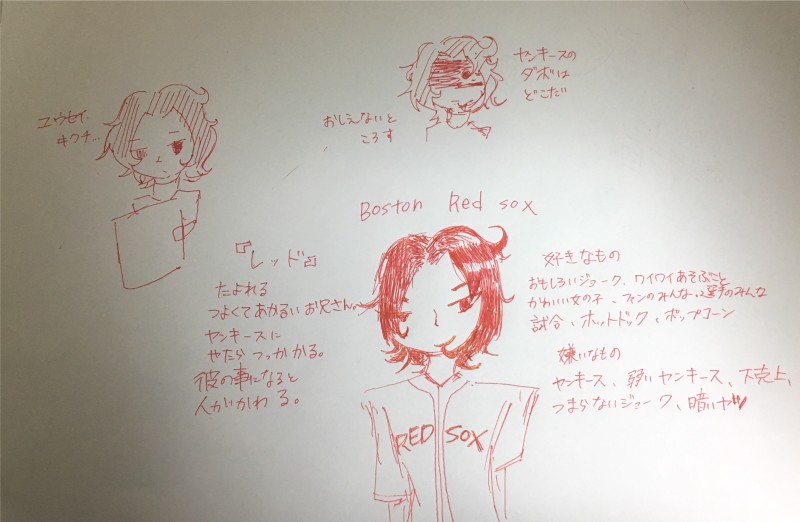 ヤンキースの
ダボは
どこだ
おしえないと
ころす
ユウセイ
キクチ..
Boston Red sox
『レッド』
たよれる
つよくてあかるいお兄さん。
ヤンキースに
やたらつっかかる。
彼の事になると
人がいかわる。
好きなもの
おもしろいジョーク、ワイワイあそぶこと
かわいい女の子、ファンのみんな、選手のみんな
試合、ホットドック、ポップコーン
嫌いなもの
ヤンキース、弱いヤンキース、下克上、
つまらないジョーク、暗いヤツ
RED SOX